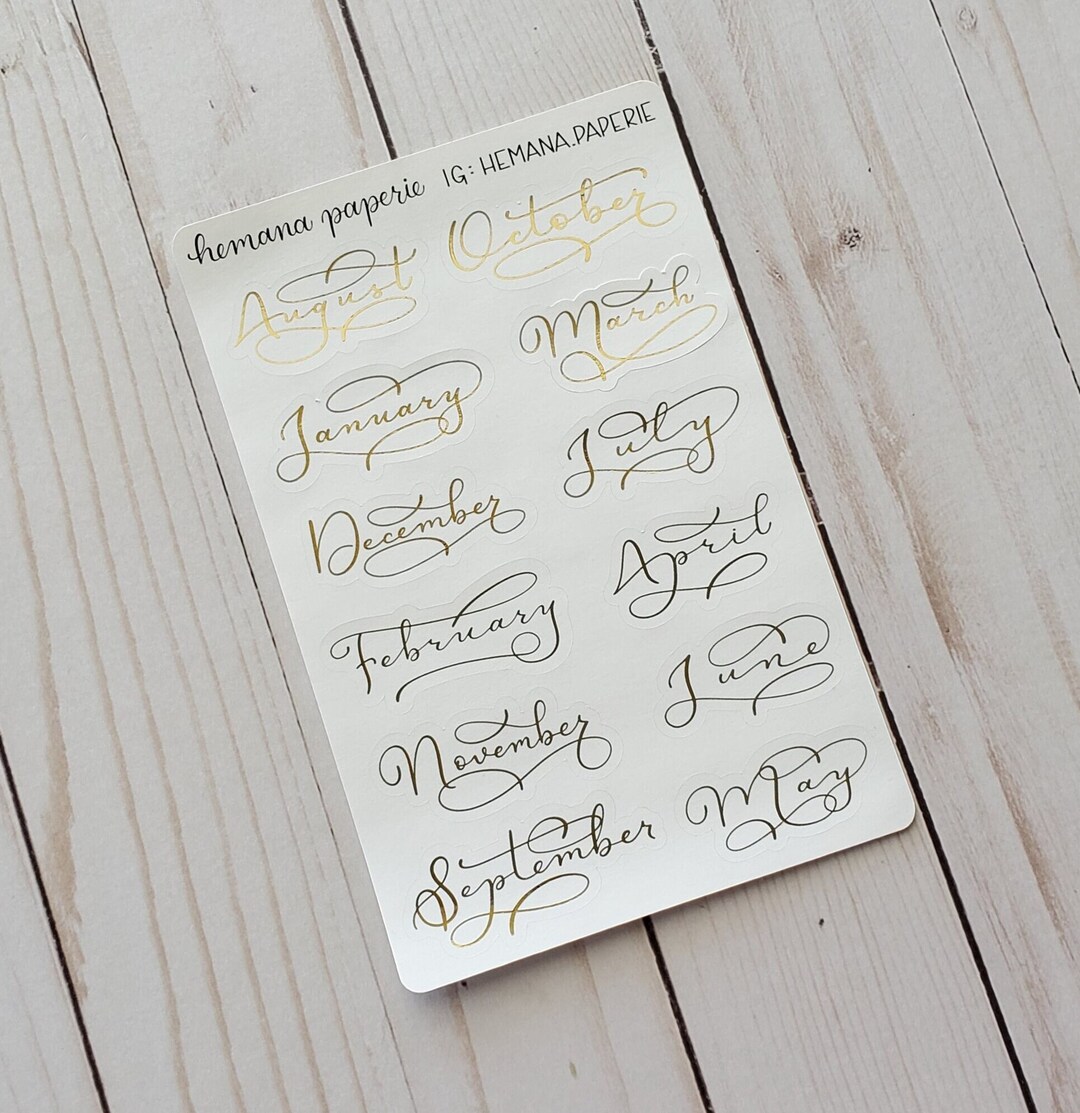 hemana paperie IG: HEMANA.PAPERIE
August October
March
January
July
December
April
February
June
November
May
September